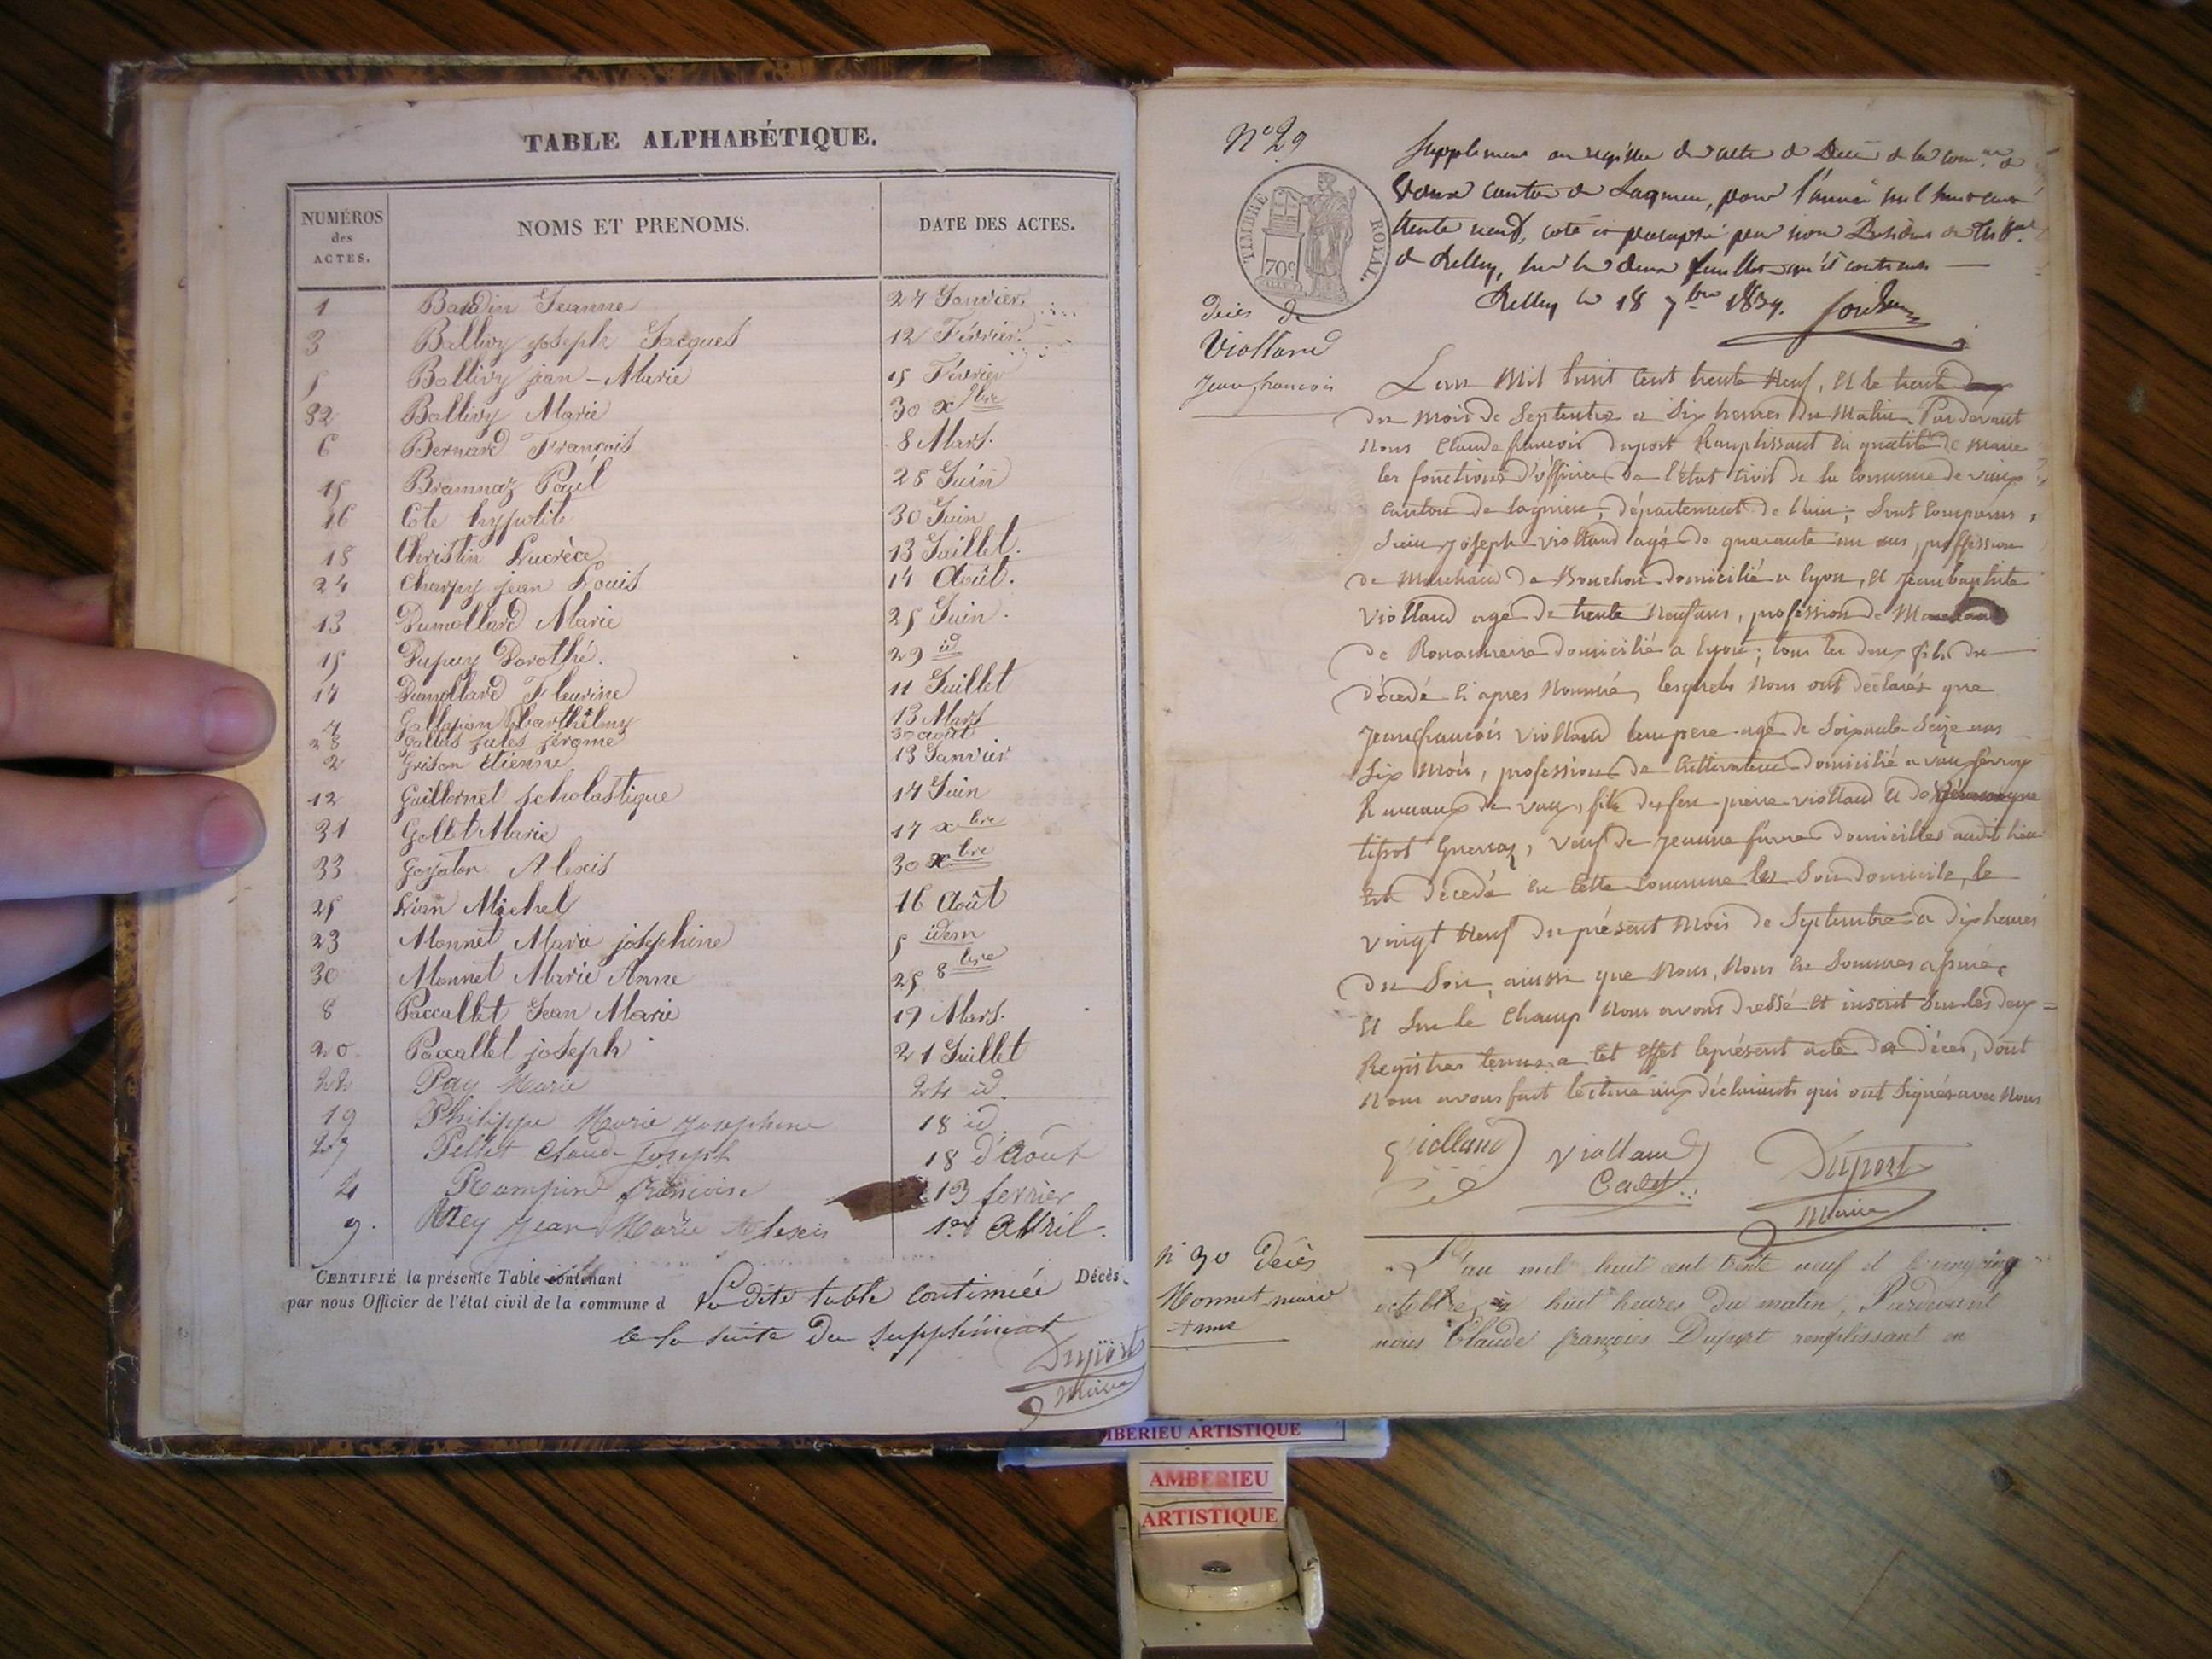 TABLE ALPHABÉTIQUE.
NUMÉROS des ACTES.
NOMS ET PRENOMS.
DATE DES ACTES.
1 Baudin Jeanne 27 Janvier.
3 Ballivy joseph Jacques 12 Février.
5 Ballivy jean-Marie 15 Février
32 Ballivy Marie 30 xbre
6 Bernard François 8 Mars.
15 Bramnaz Paul 28 Juin
16 Cote hypolite 30 Juin
18 Christin Lucrèce 13 Juillet.
24 Charpy jean Louis 14 Août.
13 Dumollard Marie 25 Juin.
15 Dupuy Dorothé. 29 id
17 Dumollard Fleurine 11 Juillet
7 barthélmy 13 Mars
28 Gallets jules jérome 30 août
2 Grison Etienne 13 Janvier
12 Guillermet scholastique 17 Juin
31 Gollet Marie 17 xbre
33 Goyaton Alexis 30 xbre
25 Lian Michel 16 Août
23 Monnet Marie josephine 5 idem
30 Monnet Marie Anne 25 8bre
8 Paccallet Jean Marie 19 Mars.
20 Paccallet joseph 21 Juillet
22 Pay Marie 24 id.
19 Philippe Marie Josephine 18 id.
27 Pellet Claude Joseph 18 d'Août
4 françoise 13 fevrier
9. Rey Jean Marie Alexis 1er Avril.
CERTIFIÉ la présente Table contenant Décès.
par nous Officier de l'état civil de la commune d La dite table continuée
a la suite du supplément
Duport
Maire
No 29
TIMBRE ROYAL.
70c
Supplément au registre des actes de Décès de la comne de
Vaux canton de Lagnieu, pour l'année mil huit cent
trente neuf, coté et paraphé par nous Président du Tribal
de Belley, sur les deux feuillets qu'il contient
Belley le 18 7bre 1839.
décès de
Violland
Jean francois
L'an Mil huit Cent trente Neuf, Et le trente
du mois de Septembre a Six heures du Matin Pardevant
Nous Claude françois duport Remplissant en qualité de maire
les fonctions d'officier de l'état Civil de la Commune de vaux
canton de lagnieu, département de l'ain; Sont Comparus,
Sieur joseph violland agé de quarante un ans, proffession
de Marchand de Bouchon domicilié a lyon, Et jean baptiste
Violland agé de trente Neuf ans, profession de Marchand
de Rouannerie domicilié a lyon; tous les deux fils du
décedé Ci apres Nommé, lesquels Nous ont déclarés que
Jean francois violland leur pere agé de Soixante Seize ans
Six Mois, profession de Cultivateur domicilié a vaux fevroy
hameaux de vaux, fils de feu pierre violland Et de
Guerraz, Veuf de jeanne favre domiciliés audit lieu
Est décedé en Cette Commune en Son domicile, le
vingt Neuf du présent Mois de Septembre a dix heures
du Soir, ainssi que Nous, Nous en Sommes assuré,
Et Sur le Champ Nous avons dressé Et inscrit Sur les deux
Registres tenus a Cet Effet le présent acte de décès, dont
Nous avons fait lecture aux déclarants qui ont Signés avec Nous
Violland
Violland
Cadet
Duport
Maire
n 30 Décès
Monnet marie
anne
L'an mil huit cent trente neuf et le vingt cinq
octobre, à huit heures du matin, Pardevant
nous Claude françois Duport remplissant en
AMBERIEU ARTISTIQUE
AMBERIEU
ARTISTIQUE